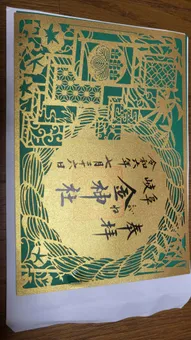 奉拝
岐阜
金神社
令和六年七月二十六日